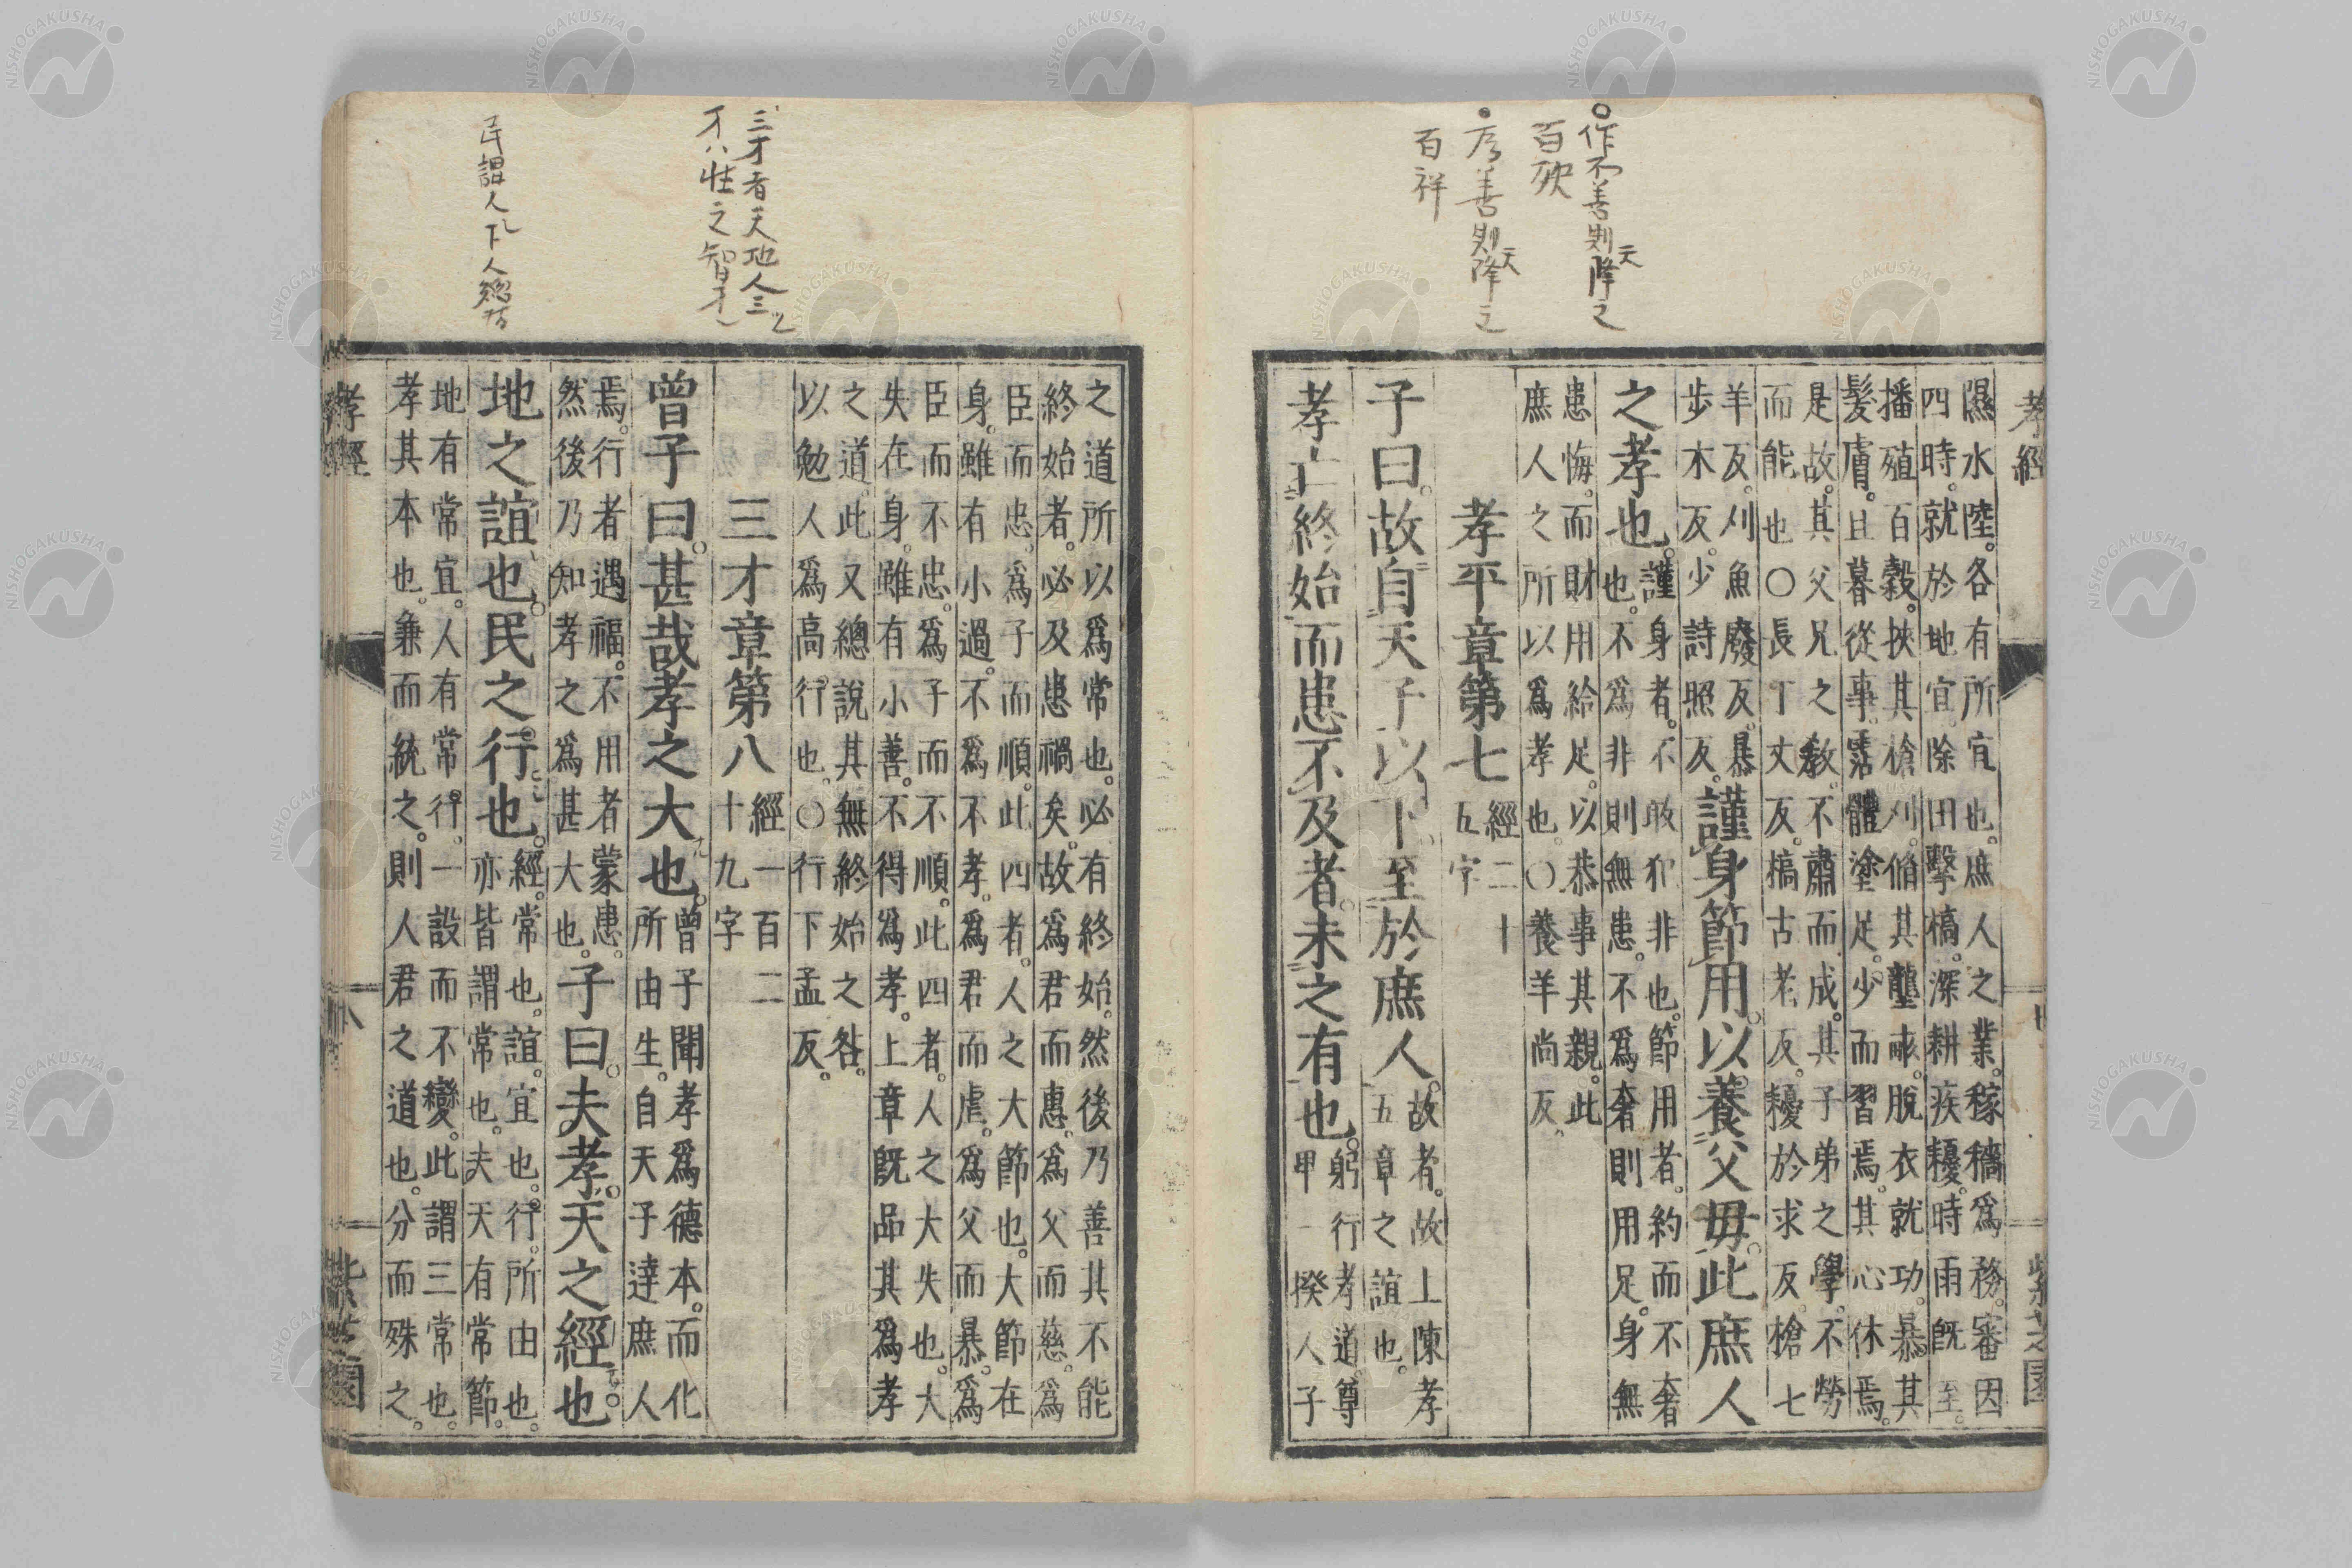 ○作不善則天降之
百殃
・爲善則天降之
百祥
孝經
紫芝園
濕水陸。各有所宜也。庶人之業。稼穡爲務。審因
四時。就於地宜。除田擊槁。深耕疾耰。時雨既至。
播殖百穀。挾其槍刈。脩其壟畝。脫衣就功。暴其
髮膚。旦暮從事。霑體塗足。少而習焉。其心休焉。
是故。其父兄之教。不肅而成。其子弟之學。不勞
而能也○長丁丈反。槁古老反。耰於求反。槍七
羊反。刈魚廢反。暴
步木反。少詩照反。
謹身節用。以養父母。此庶人
之孝也。
謹身者。不敢犯非也。節用者。約而不奢
也。不爲非則無患。不爲奢則用足。身無
患悔。而財用給足。以恭事其親。此
庶人之所以爲孝也。○養羊尚反。
孝平章第七
經二十
五字
子曰。故自天子以下。至於庶人。
故者。故上陳孝
五章之誼也。
孝亡終始而患不及者。未之有也。
躬行孝道。尊
卑一揆人子
三才者天地人三
才ハ性之智才
民謂人下人總
之道所以爲常也。必有終始。然後乃善其不能
終始者。必及患禍矣。故爲君而惠。爲父而慈。爲
臣而忠。爲子而順。此四者。人之大節也。大節在
身。雖有小過。不爲不孝。爲君而虐。爲父而暴。爲
臣而不忠。爲子而不順。此四者。人之大失也。大
失在身。雖有小善。不得爲孝。上章既品其爲孝
之道。此又總說其無終始之咎。
以勉人爲高行也。○行下孟反。
三才章第八
經一百二
十九字
曾子曰。甚哉孝之大也。
曾子聞孝爲德本。而化
所由生。自天子達庶人
焉。行者遇福。不用者蒙患。
然後乃知孝之爲甚大也。
子曰。夫孝。天之經也。
地之誼也。民之行也。
經。常也。誼。宜也。行。所由也。
亦皆謂常也。夫天有常節。
地有常宜。人有常行。一設而不變。此謂三常也。
孝其本也。兼而統之。則人君之道也。分而殊之。
孝經
八
紫芝園